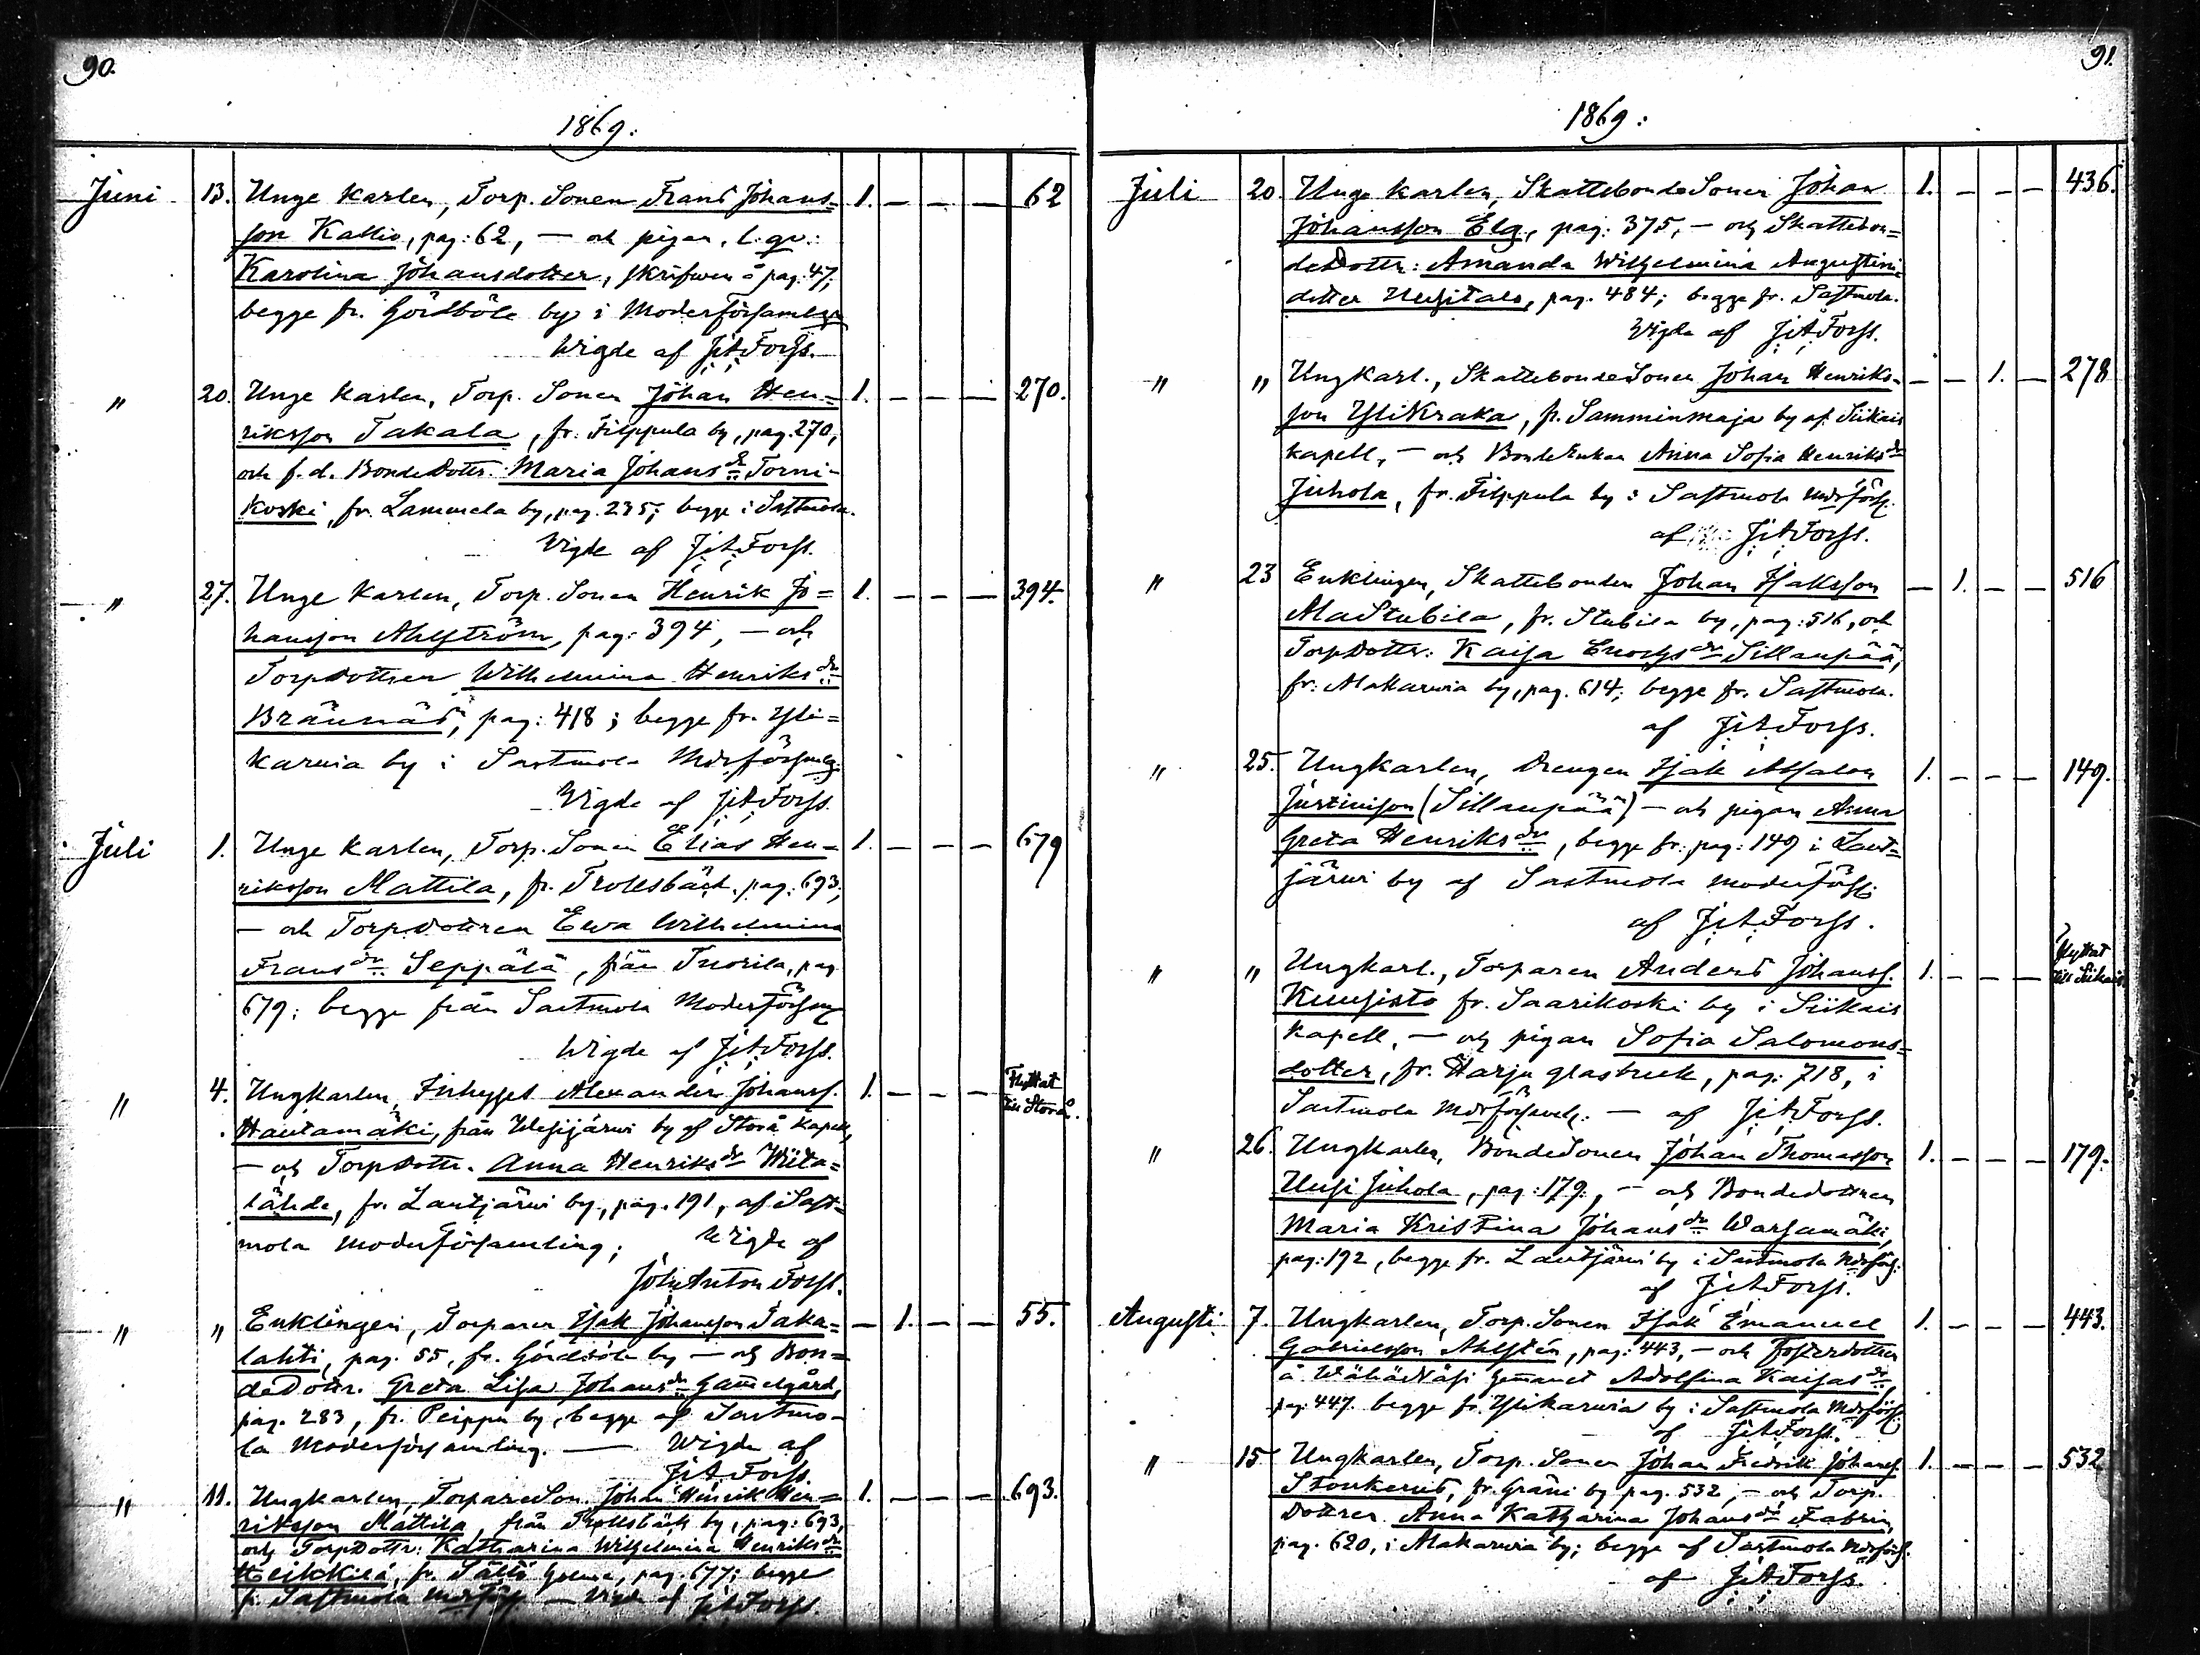 90.
1869.
Juni 13. Unge Karlen, Torp. Sonen Frans Johans= 1. — — — 62
son Kallio, pag: 62, — och pigan, l. qv.:
Karolina Johansdotter, skrifven å pag. 47,
begge fr. Gördböle by i Moderförsamlgn
Wigde af J. A. Forss.
" 20. Unge Karlen, Torp. Sonen Johan Hen= 1. — — — 270.
riksson Takala, fr. Filppula by, pag. 270,
och f. d. BondeDottr. Maria Johansdr Torni-
koski, fr. Lammela by, pag. 235; begge i Sastmola.
Wigde af J. A. Forss.
" 27. Unge Karlen, Torp. Sonen Henrik Jo= 1. — — — 394.
hansson Ahlström, pag: 394, — och
Torpdottren Wilhelmina Henriksdr
Brännäs, pag: 418; begge fr. Yli=
karvia by i Sastmola Mdrförsmlg.
Wigde af J. A. Forss.
Juli 1. Unge Karlen, Torp. Sonen Elias Hen= 1. — — — 679
riksson Mattila, fr. Trollsbäck, pag: 693;
— och Torpdottren Ewa Wilhelmina
Fransdr Seppälä, från Tuorila, pag.
679; begge från Sastmola Moderförsmg
Wigde af J. A. Forss.
" 4. Ungkarlen, Inhyset Alexander Johanss. 1. — — — Flyttat till Storå.
Hautamäki, från Wesijärwi by af Storå Kapell,
— och Torpdottr. Anna Henriksdr Wiita=
lähde, fr. Lautjärwi by, pag. 191, af Sast=
mola Moderförsamling; Wigde af
John Anton Forss.
" " Enklingen, Torparen Isak Johansson Taka= — 1. — — 55.
lahti, pag. 55, fr. Gördböle by — och Bon=
deDottr. Greta Lisa Johansdr Gam̅elgård,
pag. 283, fr. Peippu by, begge af Sastmo-
la Moderförsamling. — Wigde af
J. A. Forss.
" 11. Ungkarlen, TorpareSon. Johan Henrik Hen= 1. — — — 693.
riksson Mattila, från Trollsbäck by, pag: 693,
och TorpDottr: Katharina Wilhelmina Henriksdr
Heikkilä, fr. Sälttö pag. 677; begge
fr. Sastmola Mdrförs — Wigde af J. A. Forss.
91.
1869.
Juli 20. Unge Karlen, SkattebondeSonen Johan 1. — — — 436.
Johansson Elg, pag: 375, — och Skattebon=
deDottr: Amanda Wilhelmina Augustini
dotter Uusitalo, pag. 484; begge fr. Sastmola.
Wigde af J. A. Forss.
" " Ungkarl., SkattebondeSonen Johan Henriks= — — 1. — 278
son Ylikraka, fr. Samminmaja by af Siikais
kapell, — och BondeEnkan Anna Sofia Henriksdr
Juhola, fr. Filppula by i Sastmola Mdrförs.
af J. A. Forss.
" 23 Enklingen, Skattebonden Johan Isaksson — 1. — — 516
AlaStubila, fr. Stubila by, pag: 516, och
TorpDottr: Kaisa Enochsdr Sillanpää,
fr. Alakarwia by, pag. 614; begge fr. Sastmola.
af J. A. Forss.
" 25. Ungkarlen, Drengen Isak Absalon 1. — — — 149.
Justinsson (Sillanpää) — och pigan Anna
Greta Henriksdr, begge fr. pag: 149 i Laut=
järwi by af Sastmola moderförs.
af J. A. Forss.
" " Ungkarl., Torparen Anders Johanss. 1. — — — Flyttat till Siikais.
Kuusisto fr. Saarikoski by i Siikais
Kapell, — och pigan Sofia Salomons=
dotter, fr. Harju glasbruk, pag: 718, i
Sastmola Mdrförsmlg. — af J. A. Forss.
" 26. Ungkarlen, BondeSonen Johan Thomasson 1. — — — 179.
Uusi Juhola, pag: 179, — och Bondedottren
Maria Kristina Johansdr Warsamäki,
pag: 192, begge fr. Lautjärwi by i Sastmola Mdrförs.
af J. A. Forss.
Augusti 7. Ungkarlen, Torp. Sonen Isak Emanuel 1. — — — 443.
Gabrielsson Ahlstén, pag: 443, — och Fosterdottren
å hem̅anet Adolfina Kaisasdr,
pag. 447. begge fr. Ylikarwia by i Sastmola Mdrförs.
af J. A. Forss.
" 15 Ungkarlen, Torp. Sonen Johan Fredrik Johanss. 1. — — — 532
Storkerus, fr. Gräni by pag. 532, — och Torp.
Dottren Anna Katharina Johansdr Fabrin,
pag. 620, i Alakarwia by; begge af Sastmola Mdrförs.
af J. A. Forss.